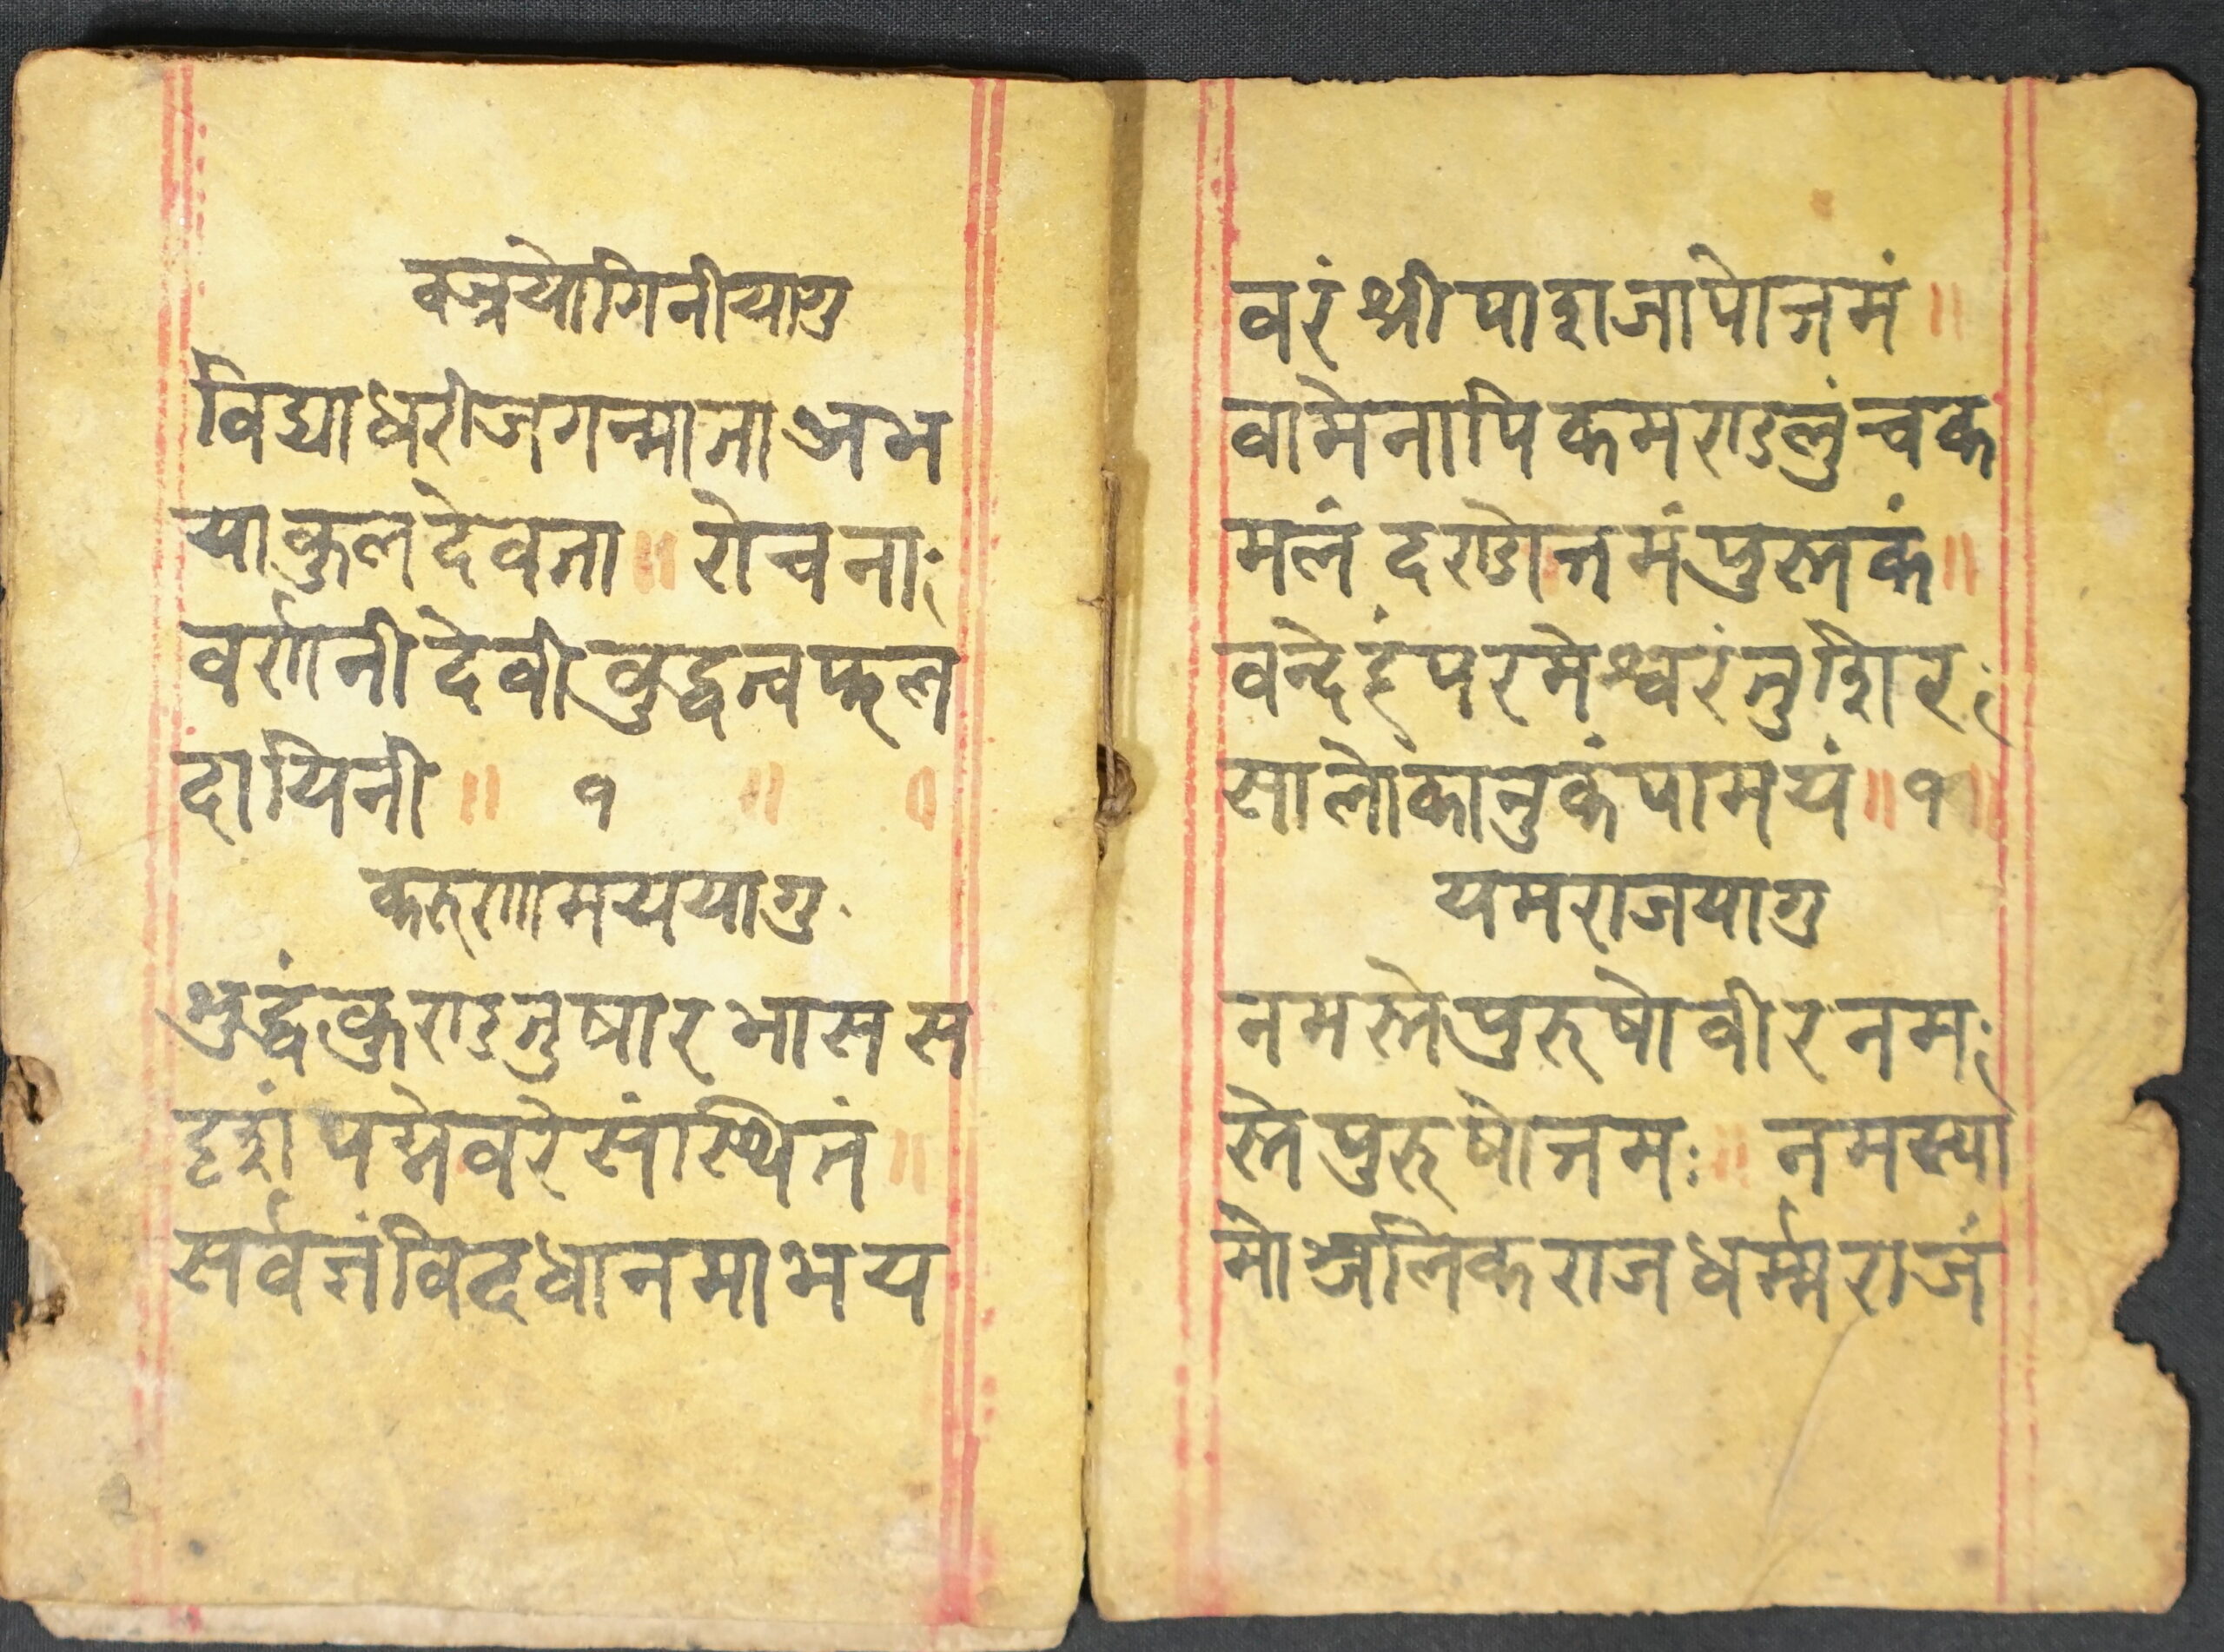 वज्रयोगिनीयागु
विद्याधरीजगन्माताअभ
याकुलदेवता॥ रोचना
वर्णानीदेवीवुद्धत्वफल
दायिनी॥ १ ॥ ०
करुणामययागु
शुद्धंकुण्डतुषारभासस
दृशंपद्मेवरेसंस्थितं॥
सर्वज्ञंविदधानमाभय
वरंश्रीपाशजापोत्तमं॥
वामेनापिकमण्डलुंचक
मलंदण्डोत्तमंपुस्तकं॥
वन्देहंपरमेश्वरंतुशिर
सालोकानुकंपामयं॥१॥
यमराजयागु
नमस्तेपुरुषोवीरनम
स्तेपुरुषोत्तमः॥ नमस्या
मोञ्जलिकराजधर्म्मराजं